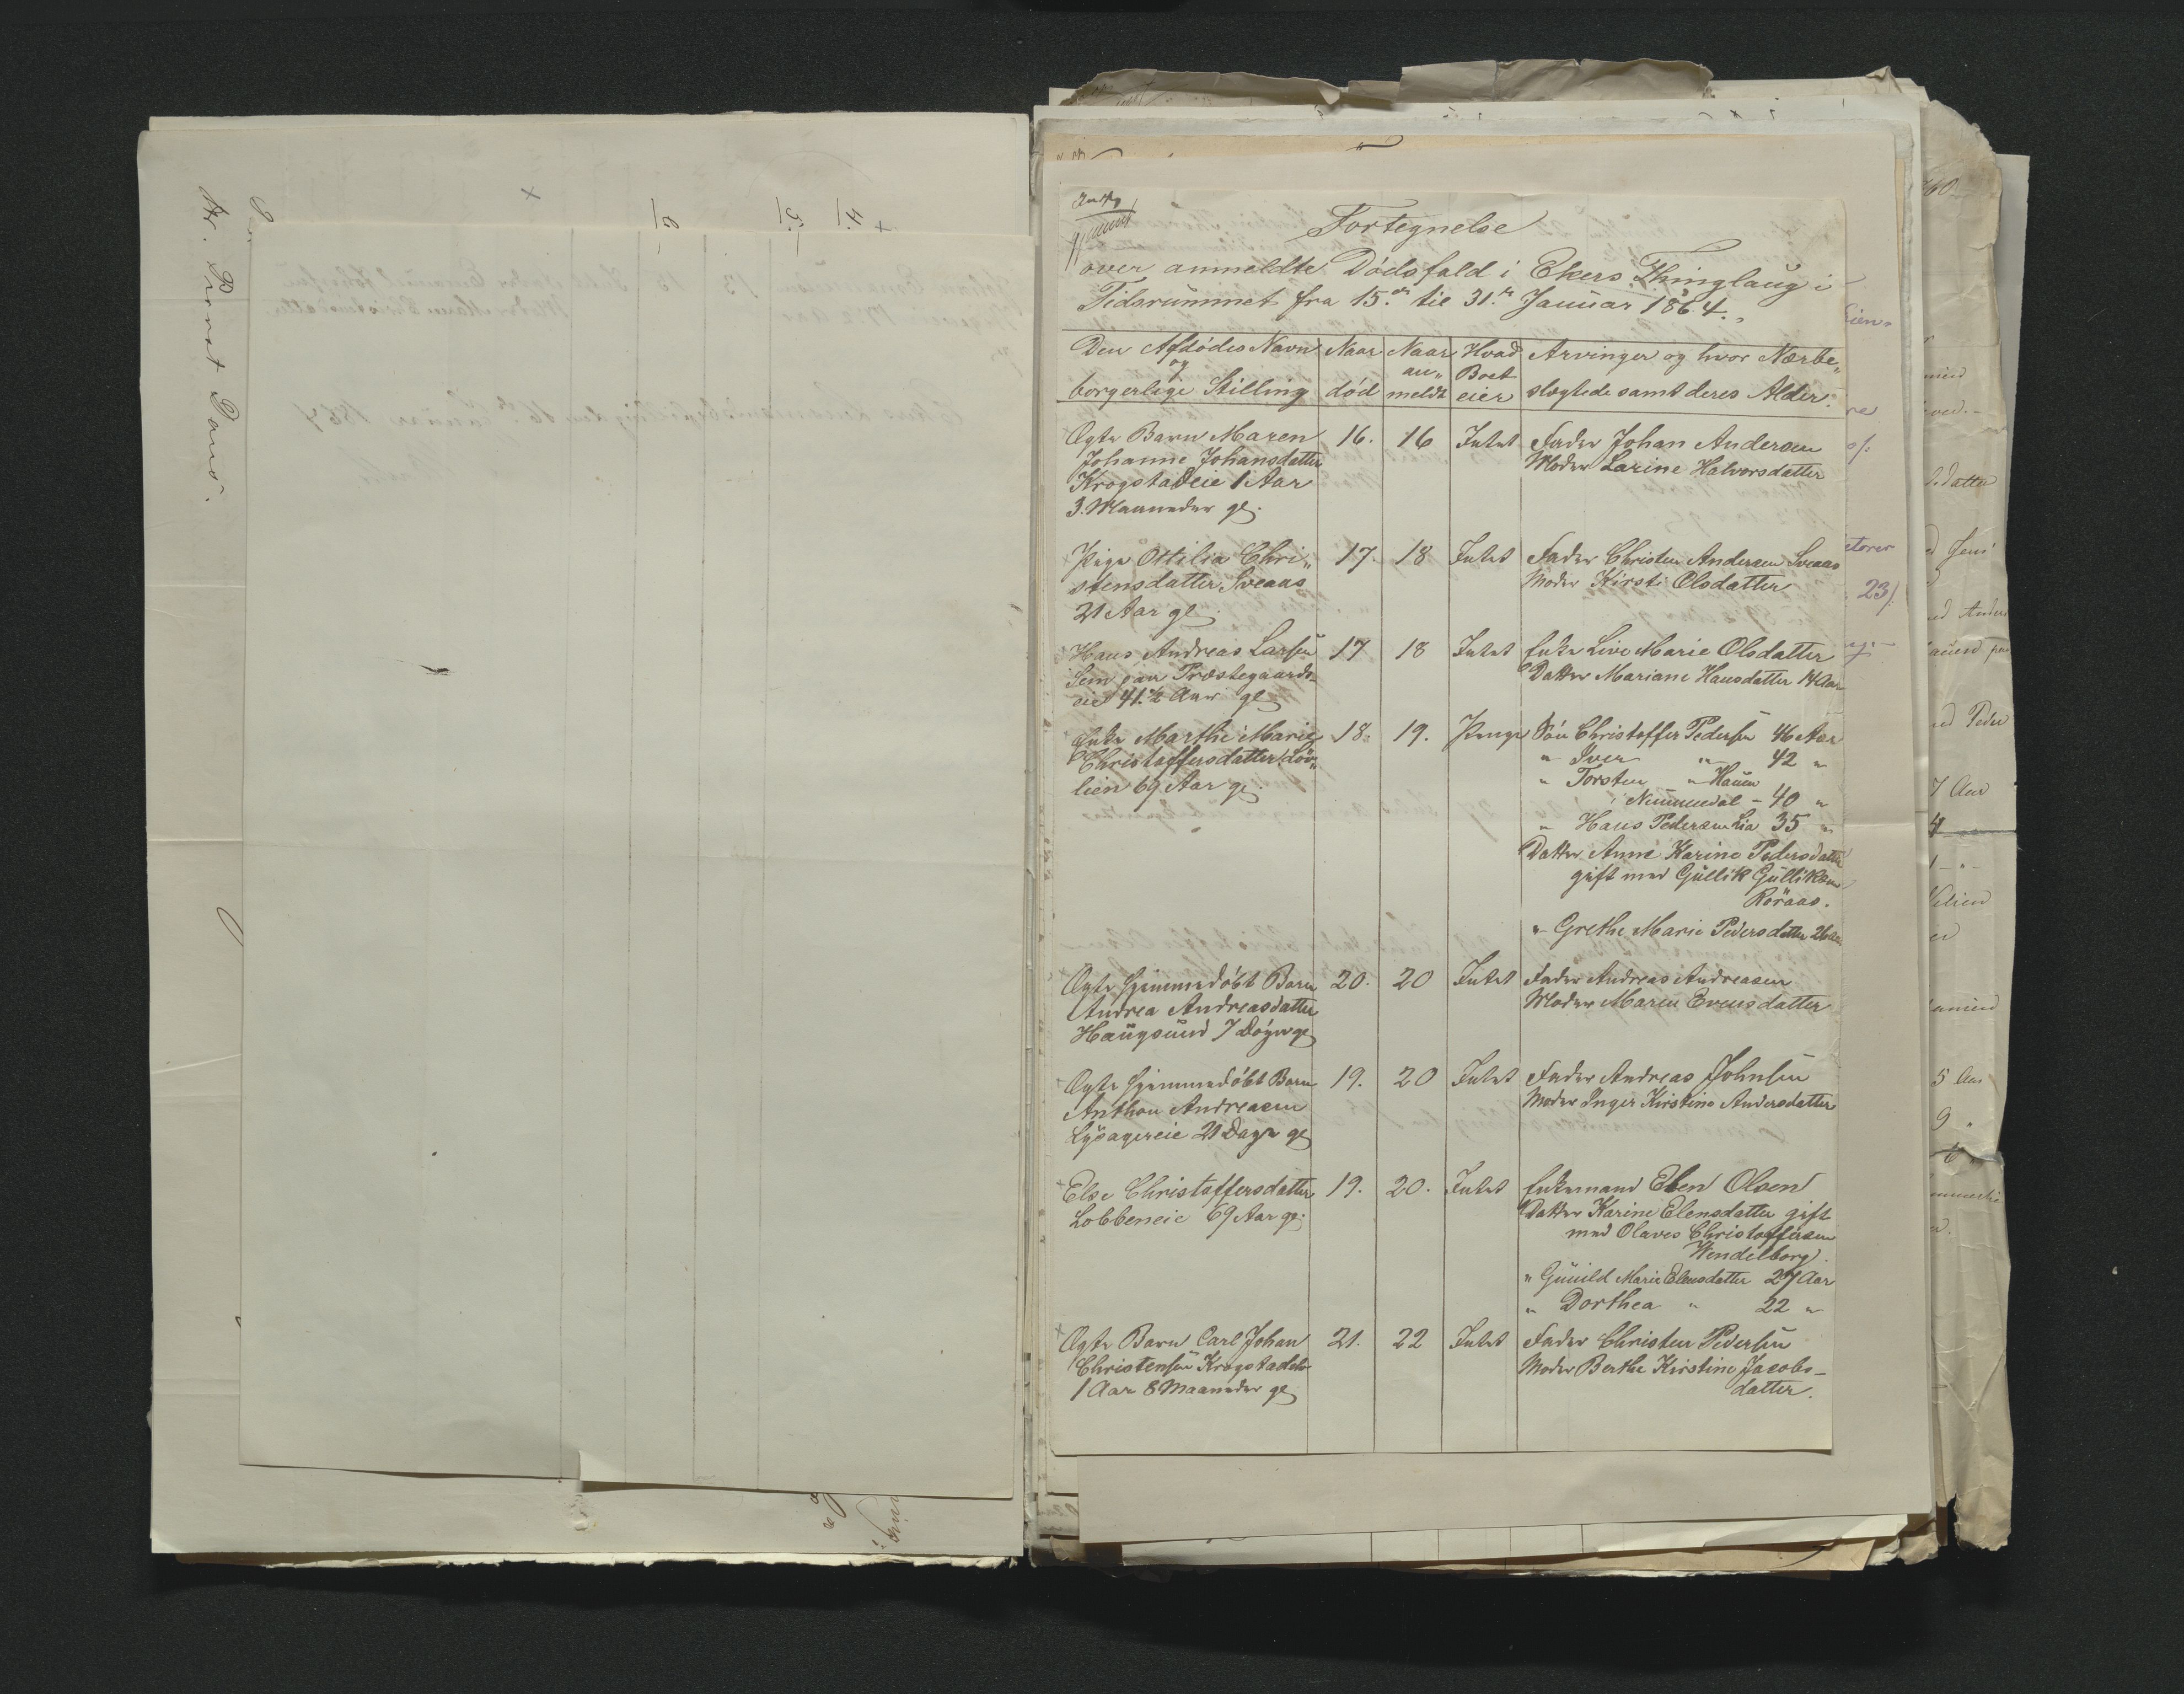 Hr. Provst Daus.
Fortegnelse
over anmeldte Dödsfald i Ekers Thinglaug i
Tidsrummet fra 15.de til 31.te Januar 1864.
Den Afdödes Navn
og
borgerlige Stilling
Naar
död
Naar
an„
meldt
Hvad
Boet
eier
Arvinger og hvor Nærbe„
slægtede samt deres Alder.
Ægte Barn Maren
Johanne Johansdatter
Krogstadeie 1 Aar
3. Maaneder gl.
16.
16
Intet
Fader Johan Andersen
Moder Larine Halvorsdatter
Pige Ottilia Chri„
stensdatter Sveaas
21 Aar gl
17.
18
Intet
Fader Christen Andersen Sveaas
Moder Kirsti Olsdatter
Hans Andreas Larsen
Præstegaards-
eie 41 1/2 Aar gl
17
18
Intet
Enke Live Marie Olsdatter
Datter Mariane Hansdatter 14 Aar
Enke Marthe Marie
Christoffersdatter Löv„
lien 69 Aar gl.
18.
19.
Penge
Sön Christoffer Pedersen 46 Aar
" Iver " 42 "
" Torsten " Haum
Nummedal - 40 "
" Hans Pedersen Lia 35 "
Datter Anne Karine Pedersdatter
gift med Gullik Gulliksen
Röraas.
" Grethe Marie Pedersdatter 26 Aar
Ægte hjemmedöbt Barn
Andrea Andreasdatter
Haugsund 7 Dögn gl
20.
20
Intet
Fader Andreas Andreasen
Moder Maren Evensdatter
Ægte hjemmedöbt Barn
Anthon Andreasen
Lysagereie 21 Dage gl
19.
20
Intet
Fader Andreas Johnsen
Moder Inger Kirstine Andersdatter
Else Christoffersdatter
Lobbeneie 69 Aar gl.
19.
20.
Intet
Enkemand Elen Olsen
Datter Karine Elensdatter gift
med Olaves Christoffersen
Wendelborg.
" Gunild Marie Elensdatter 27 Aar
" Dorthea " 22 "
Ægte Barn Carl Johan
Christensen Krogstadeie
1 Aar 8 Maaneder gl
21.
22
Intet
Fader Christen Pedersen
Moder Berthe Kirstine Jacobs-
datter.
23/.